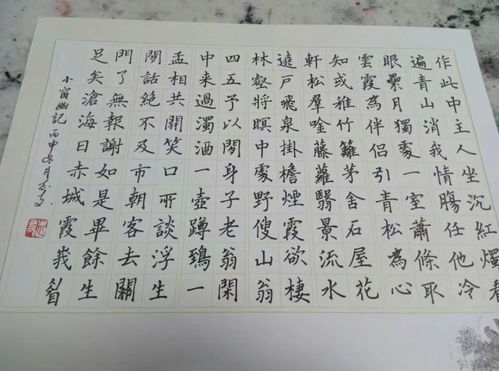 作此中主人坐沉紅燭看
遍青山消我情腸任他冷
眼纍月獨處一室蕭條取
雲霞為伴侶引青松為心
知或稚竹籬茅舍石屋花
軒松羣唫藤蘿翳景流水
遶戶飛泉掛檐煙霞欲棲
林壑將暝中處野叟山翁
四五予以閒身子老翁閑
中来過濁酒一壺蹲鴟一
盂相共開笑口所談浮生
閒話絕不及市朝客去關
門了無報謝如是畢餘生
足矣滄海日赤城霞峩眉
小窗幽記 丙申